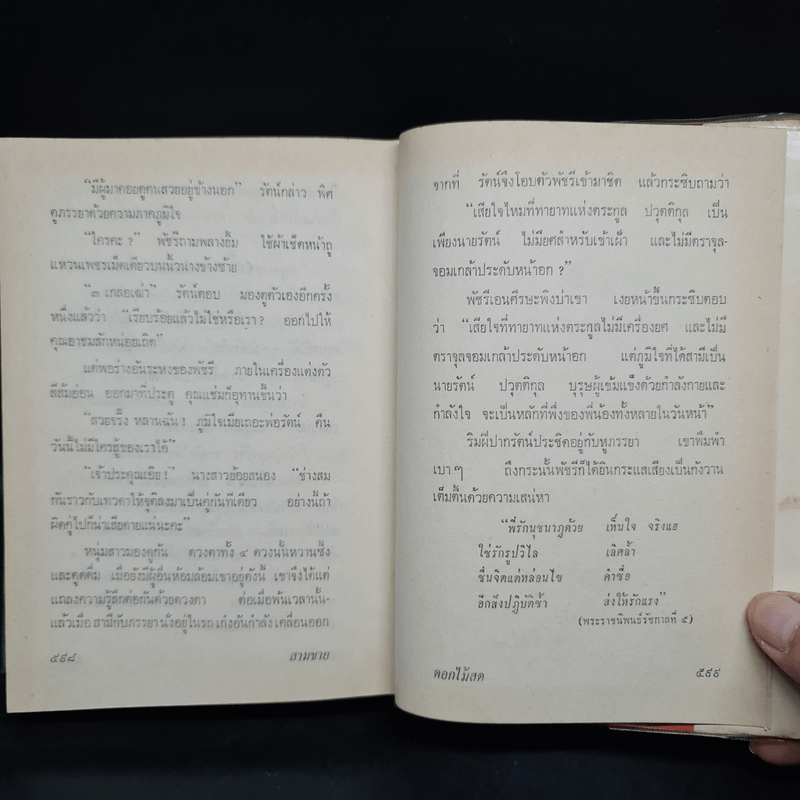 "มีผู้มาคอยดูคนสวยอยู่ข้างนอก" รัตน์กล่าว พิศ
ดูภรรยาด้วยความภาคภูมิใจ
"ใครคะ ?" พัชรีถามพลางยิ้ม ใช้ผ้าเช็ดหน้าถู
แหวนเพชรเม็ดเดียวบนนิ้วนางข้างซ้าย
"๓ เกลอเฒ่า" รัตน์ตอบ มองดูตัวเองอีกครั้ง
หนึ่งแล้วว่า "เรียบร้อยแล้วไม่ใช่หรือเรา ? ออกไปให้
คุณอาชมสักหน่อยเถิด"
แต่พอร่างอันระหงของพัชรี ภายในเครื่องแต่งตัว
สีส้มอ่อน ออกมาที่ประตู คุณแช่มก็อุทานขึ้นว่า
"สวยจริ๊ง หลานฉัน ! ภูมิใจเมียเถอะพ่อรัตน์ คืน
วันนี้ไม่มีใครสู้ของเราได้"
"เจ้าประคุณเอ๊ย !" นางสาวย้อยสนอง "ช่างสม
กันราวกับเทวดาให้จุติลงมาเป็นคู่กันทีเดียว อย่างนี้ถ้า
ผิดคู่ไปก็น่าเสียดายแน่นะคะ"
หนุ่มสาวมองดูกัน ดวงตาทั้ง ๔ ดวงนั้นหวานซึ้ง
และดูดดื่ม เมื่อยังมีผู้อื่นห้อมล้อมเขาอยู่ดังนี้ เขาจึงได้แต่
แถลงความรู้สึกต่อกันด้วยดวงตา ต่อเมื่อพ้นเวลานั้น-
แล้วเมื่อ สามีกับภรรยา นั่งอยู่ในรถ เก๋งอันกำลัง เคลื่อนออก
๕๙๘ สามชาย
จากที่ รัตน์จึงโอบตัวพัชรีเข้ามาชิด แล้วกระซิบถามว่า
"เสียใจไหมที่ทายาทแห่งตระกูล ปวุตติกุล เป็น
เพียงนายรัตน์ ไม่มียศสำหรับเข้าเฝ้า และไม่มีตราจุล-
จอมเกล้าประดับหน้าอก ?"
พัชรีเอนศีรษะพิงบ่าเขา เงยหน้าขึ้นกระซิบตอบ
ว่า "เสียใจที่ทายาทแห่งตระกูลไม่มีเครื่องยศ และไม่มี
ตราจุลจอมเกล้าประดับหน้าอก แต่ภูมิใจที่ได้สามีเป็น
นายรัตน์ ปวุตติกุล บุรุษผู้เข้มแข็งด้วยกำลังกายและ
กำลังใจ จะเป็นหลักที่พึ่งของพี่น้องทั้งหลายในวันหน้า"
ริมฝีปากรัตน์ประชิดอยู่กับหูภรรยา เขาพึมพำ
เบา ๆ ถึงกระนั้นพัชรีก็ได้ยินกระแสเสียงเป็นกังวาน
เต็มตื้นด้วยความเสน่หา
"พี่รักนุชนาฎด้วย เห็นใจ จริงแฮ
ใช่รักรูปวิไล เลิศล้ำ
ชื่นจิตแต่หล่อนไข คำซื่อ
อีกสิ่งปฏิบัติซ้ำ ส่งให้รักแรง"
(พระราชนิพนธ์รัชกาลที่ ๕)
ดอกไม้สด ๕๙๙